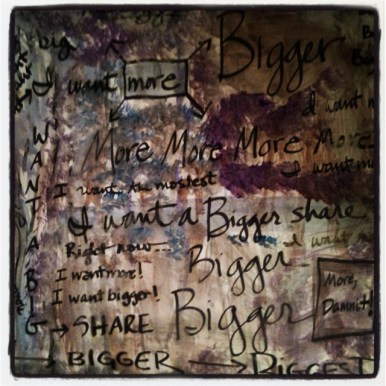 big
Bigger
I want more
I want
More More More More
I want the mostest
I want m
I want a Bigger share
Right now...
I want a
Bigger
I want more!
I want bigger!
More,
Damnit!
Bigger
I WANT A BIG → SHARE
BIGGER → BIGGEST